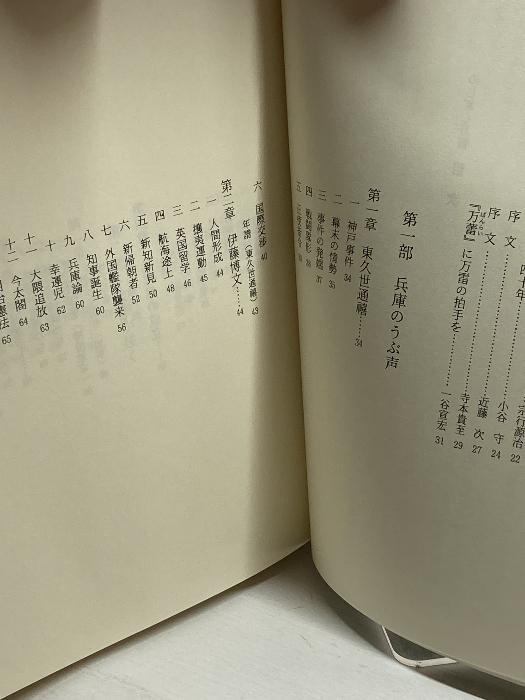 序 文 四十年
宗行源治 22
序 文
小谷 守 24
近藤 次 27
寺本貴至 29
『万蕾』に万雷の拍手を
ばんらい
一谷宣宏 31
第一部 兵庫のうぶ声
第一章 東久世通禧……34
一 神戸事件 34
二 幕末の情勢 35
三 事件の発端 37
四
五
六 国際交渉 40
年譜(東久世通禧) 43
第二章 伊藤博文……44
一 人間形成 44
二 攘夷運動 45
三 英国留学 46
四 航海途上 48
五 新知新見 50
六 新帰朝者 52
七 外国艦隊襲来 56
八 知事誕生 60
九 兵庫論 60
十 幸運児 62
十一 大隈追放 63
十二 今太閤 64
憲法 65